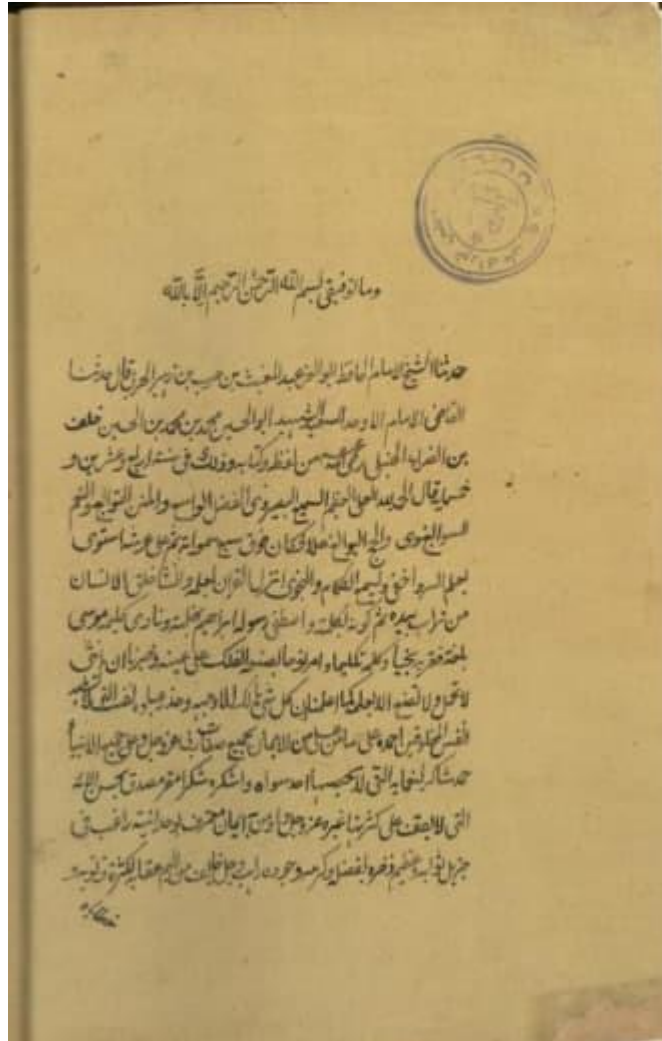 وما توفيقي بسم الله الرحمن الرحيم إلا بالله
حدثنا الشيخ الامام الحافظ ابو العز عبد المغيث بن حرب بن زهير الحربي قال حدثنا
القاضي الامام الاوحد الشهيد ابو الحسين محمد بن محمد بن الحسين خلف
بن الفراء الحنبلي من لفظه وكتابه وذلك في سنة اربع وعشرين و
خمسماية قال الحمد لله العلي العظيم السميع البصير ذي الفضل الواسع والمنن التوابع والنعم
السوابغ علا فكان فوق سبع سمواته ثم على عرشه استوى
يعلم السر واخفى ويسمع الكلام والنجوى انزل القرآن بعلمه وانشأ خلق الانسان
من تراب بيده ثم كونه بكلمته واصطفى رسوله ابراهيم بخلته ونادى كليمه موسى
فقربه نجيا وكلمه تكليما وامر نوحا بصنع الفلك على عينه وخبرنا ان انثى
لا تحمل ولا تضع الا بعلمه كما اعلمنا ان كل شيء هالك الا وجهه وحذر عباده نفسه التي لا تشبه
انفس المخلوقين احمده على ما من من الايمان بجميع صفات عز وجل
حمد شاكر لنعمايه التي لا يحصيها احد سواه واشكره شكر مقر مصدق بحسن الائه
التي لا يقف على كثرتها غيره عز وجل واومن به ايمان معترف بوحدانيته راغب في
جزيل ثوابه وعظيم ذخره بفضله وكرمه وجوده راهب وجل خايف من اليم عقابه لكثرة ذنوبه و